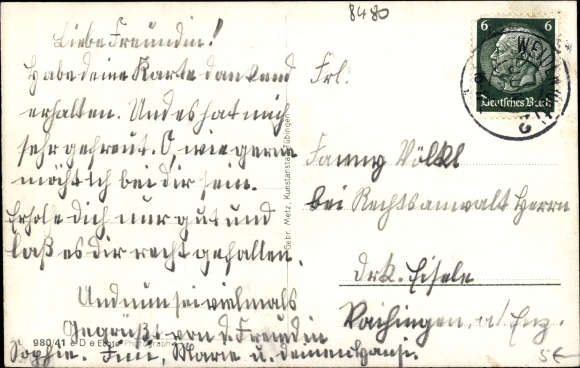 8480
Liebe Freundin!
Habe deine Karte dankend
erhalten. Und es hat mich
sehr gefreut. O, wie gerne
möcht ich bei dir sein.
Erhole dich nur gut und
laß es dir recht gefallen.
Und nun sei vielmals
Gegrüßt von d. Freundin
Sophie. Fini, Marie u.
980/41 Echte Photographie
Gebr. Metz, Kunstanstalt, Tübingen
6 6
Deutsches Reich
WEIDEN
Frl.
Fanny Völkl
bei Rechtsanwalt Herrn
Eisele
Vaihingen, a/Enz.
5€